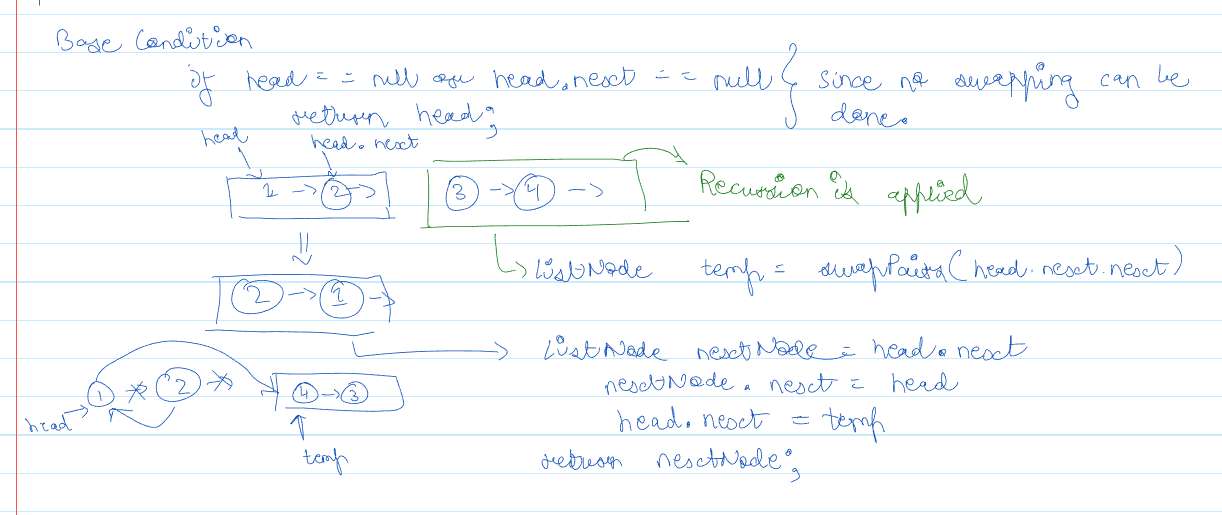 Base Condition
if head == null or head.next == null { since no swapping can be
return head; done.
head head.next
1 -> 2 -> 3 -> 4 -> Recussion is applied
ListNode temp = swapPairs(head.next.next)
2 -> 1 ->
ListNode nextNode = head.next
1 2 4 -> 3 nextNode.next = head
head head.next = temp
temp return nextNode;